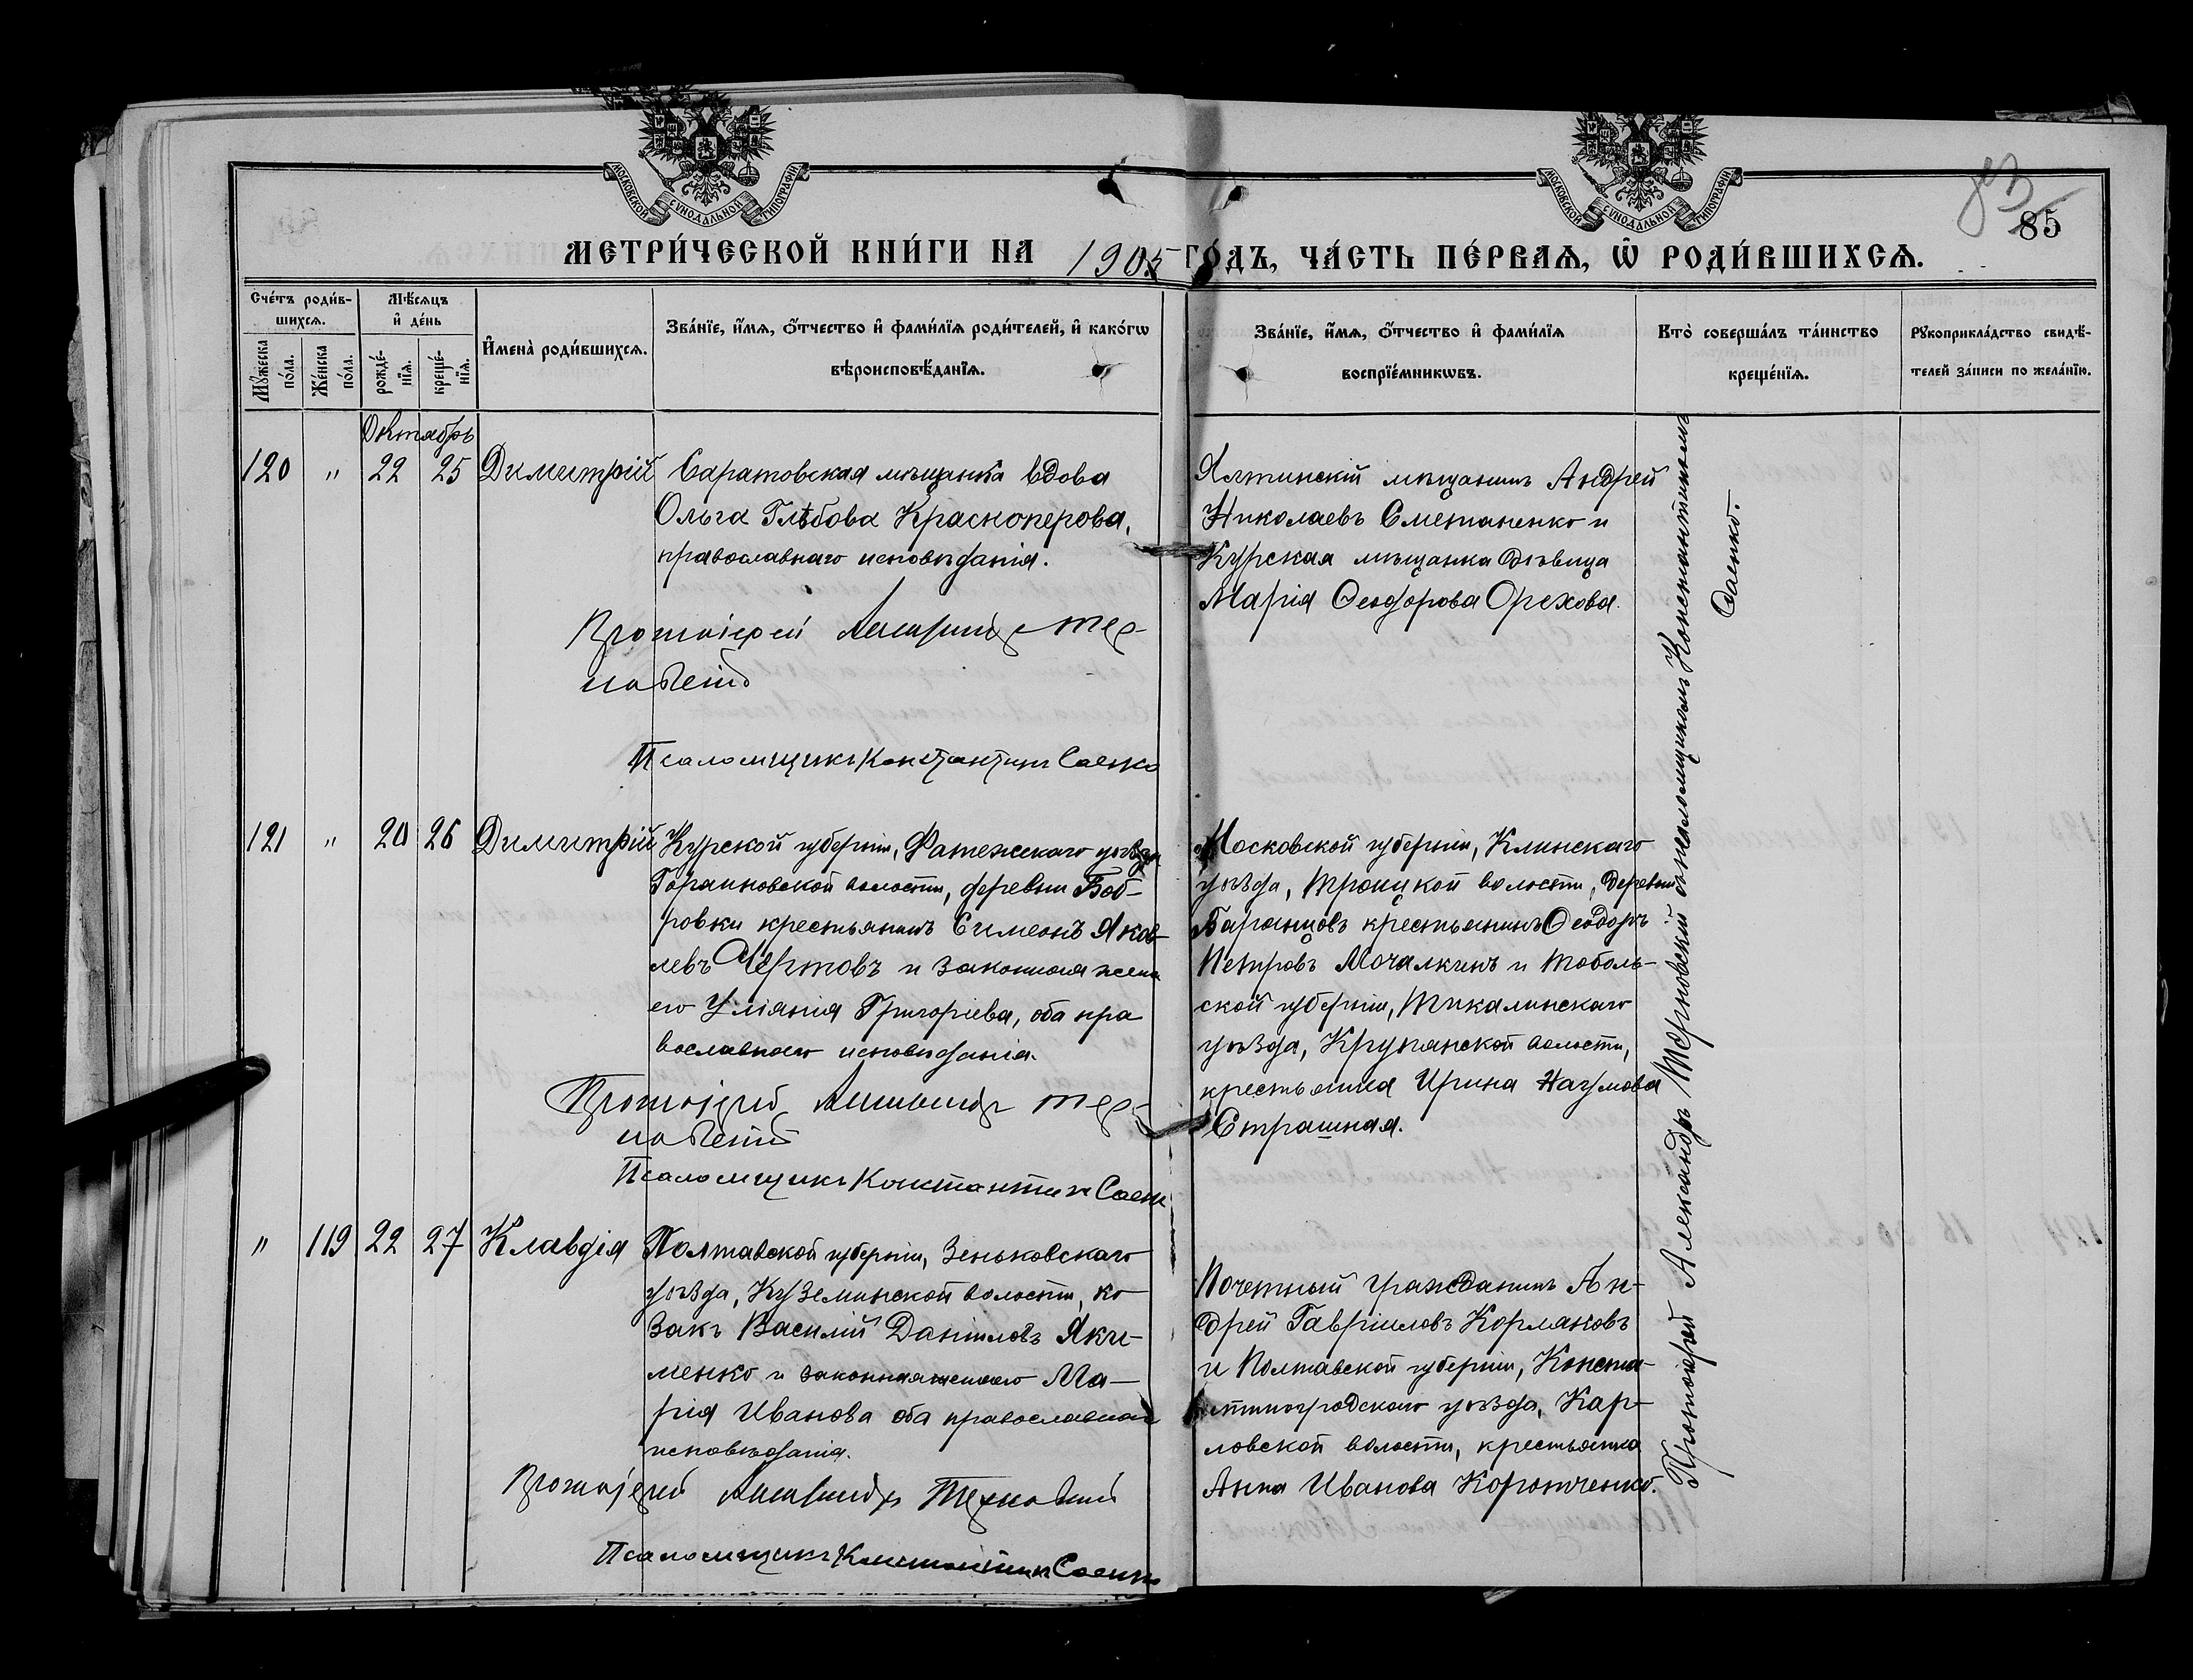 МОСКОВСКОЙ СѴНОДАЛЬНОЙ ТИПОГРАФІИ
МОСКОВСКОЙ СѴНОДАЛЬНОЙ ТИПОГРАФІИ
83
85
МЕТРИ́ЧЕСКОЙ КНИ́ГИ НА 1905 ГО́ДЪ, ЧА́СТЬ ПЕ́РВАѦ, Ѡ҆ РОДИ́ВШИХСѦ.
Сче́тъ роди́в-
шихсѧ.
Мѹ́жеска
по́ла.
Же́нска
по́ла.
Мѣ́сѧцъ
и҆ де́нь
рожде́-
нїѧ.
креще́-
нїѧ.
И҆мена̀ роди́вшихсѧ.
Зва́нїе, и҆́мѧ, ѻ҆́тчество и҆ фами́лїѧ роди́телей, и҆ како́гѡ
вѣроисповѣ́данїѧ.
Зва́нїе, и҆́мѧ, ѻ҆́тчество и҆ фами́лїѧ
воспрїе́мникѡвъ.
Кто̀ соверша́лъ та́инство
креще́нїѧ.
Рꙋкоприкла́дство свидѣ́-
телей за́писи по жела́нїю.
Октябрь
120 " 22 25 Димитрій
Саратовская мѣщанка вдова
Ольга Глѣбова Красноперова,
православнаго исповѣданія.
Протоіерей Александръ Тер-
новскій
Псаломщикъ Константинъ Саенко
Ялтинскій мѣщанинъ Андрей
Николаевъ Сметаненко и
Курская мѣщанка дѣвица
Марія Ѳеодорова Орехова.
121 " 20 26 Димитрій
Курской губерніи, Фатежскаго уѣзда
волости, деревни Боб-
ровки крестьянинъ Симеонъ Яков-
левъ Чертовъ и законная жена
его Уліянія Григоріева, оба пра
вославнаго исповѣданія.
Протоіерей Александръ Тер-
новскій
Псаломщикъ Константинъ Саенко
Московской губерніи, Клинскаго
уѣзда, Троицкой волости, деревни
Баранцовъ крестьянинъ Ѳеодоръ
Петровъ Мочалкинъ и Тоболь-
ской губерніи, Тюкалинскаго
уѣзда, Крупянской волости,
крестьянка Ирина Наумова
Страшная.
" 119 22 27 Клавдія
Полтавской губерніи, Зеньковскаго
уѣзда, Куземинской волости, ко
закъ Василій Даніиловъ Яки-
менко и законная жена его Ма-
рія Иванова оба православнаго
исповѣданія.
Протоіерей Александръ Терновскій
Псаломщикъ Константинъ Саенко
Почетный гражданинъ Ан-
дрей Гавріиловъ Кормановъ
и Полтавской губерніи, Конста-
нтиноградскаго уѣзда, Кар-
ловской волости, крестьянка
Анна Иванова Коротченко.
Протоіерей Александръ Терновскій съ псаломщикомъ Константиномъ
Саенко.